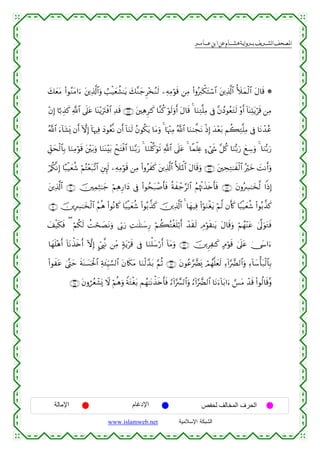 المصحف الشريف برواية هشام عن ابن عامر
* قَالَ ٱلۡمَلَأُ ٱلَّذِينَ ٱسۡتَكۡبَرُواْ مِن قَوۡمِهِۦ لَنُخۡرِجَنَّكَ يَٰشُعَيۡبُ وَٱلَّذِينَ ءَامَنُواْ مَعَكَ
مِن قَرۡيَتِنَآ أَوۡ لَتَعُودُنَّ فِي مِلَّتِنَاۚ قَالَ أَوَلَوۡ كُنَّا كَٰرِهِينَ قَدِ ٱفۡتَرَيۡنَا عَلَى ٱللَّهِ كَذِبًا إِنۡ
عُدۡنَا فِي مِلَّتِكُم بَعۡدَ إِذۡ نَجَّىٰنَا ٱللَّهُ مِنۡهَاۚ وَمَا يَكُونُ لَنَآ أَن نَّعُودَ فِيهَآ إِلَّآ أَن يَشَآءَ ٱللَّهُ
رَبُّنَاۚ وَسِعَ رَبُّنَا كُلَّ شَيۡءٍ عِلۡمًاۚ عَلَى ٱللَّهِ تَوَكَّلۡنَاۚ رَبَّنَا ٱفۡتَحۡ بَيۡنَنَا وَبَيۡنَ قَوۡمِنَا بِٱلۡحَقِّ
وَأَنتَ خَيۡرُ ٱلۡفَٰتِحِينَ وَقَالَ ٱلۡمَلَأُ ٱلَّذِينَ كَفَرُواْ مِن قَوۡمِهِۦ لَئِنِ ٱتَّبَعۡتُمۡ شُعَيۡبًا إِنَّكُمۡ
إِذًا لَّخَٰسِرُونَ فَأَخَذَتۡهُمُ ٱلرَّجۡفَةُ فَأَصۡبَحُواْ فِي دَارِهِمۡ جَٰثِمِينَ ٱلَّذِينَ
كَذَّبُواْ شُعَيۡبًا كَأَن لَّمۡ يَغۡنَوۡاْ فِيهَاۚ ٱلَّذِينَ كَذَّبُواْ شُعَيۡبًا كَانُواْ هُمُ ٱلۡخَٰسِرِينَ
فَتَوَلَّىٰ عَنۡهُمۡ وَقَالَ يَٰقَوۡمِ لَقَدۡ أَبۡلَغۡتُكُمۡ رِسَٰلَٰتِ رَبِّي وَنَصَحۡتُ لَكُمۡۖ فَكَيۡفَ
ءَاسَىٰ عَلَىٰ قَوۡمٍ كَٰفِرِينَ وَمَآ أَرۡسَلۡنَا فِي قَرۡيَةٍ مِّن نَّبِيٍّ إِلَّآ أَخَذۡنَآ أَهۡلَهَا
بِٱلۡبَأۡسَآءِ وَٱلضَّرَّآءِ لَعَلَّهُمۡ يَضَّرَّعُونَ ثُمَّ بَدَّلۡنَا مَكَانَ ٱلسَّيِّئَةِ ٱلۡحَسَنَةَ حَتَّىٰ عَفَواْ
وَّقَالُواْ قَدۡ مَسَّ ءَابَآءَنَا ٱلضَّرَّآءُ وَٱلسَّرَّآءُ فَأَخَذۡنَٰهُم بَغۡتَةً وَهُمۡ لَا يَشۡعُرُونَ
الحرف المخالف لحفص الإدغام الإمالة
www.islamweb.net الشبكة الإسلامية